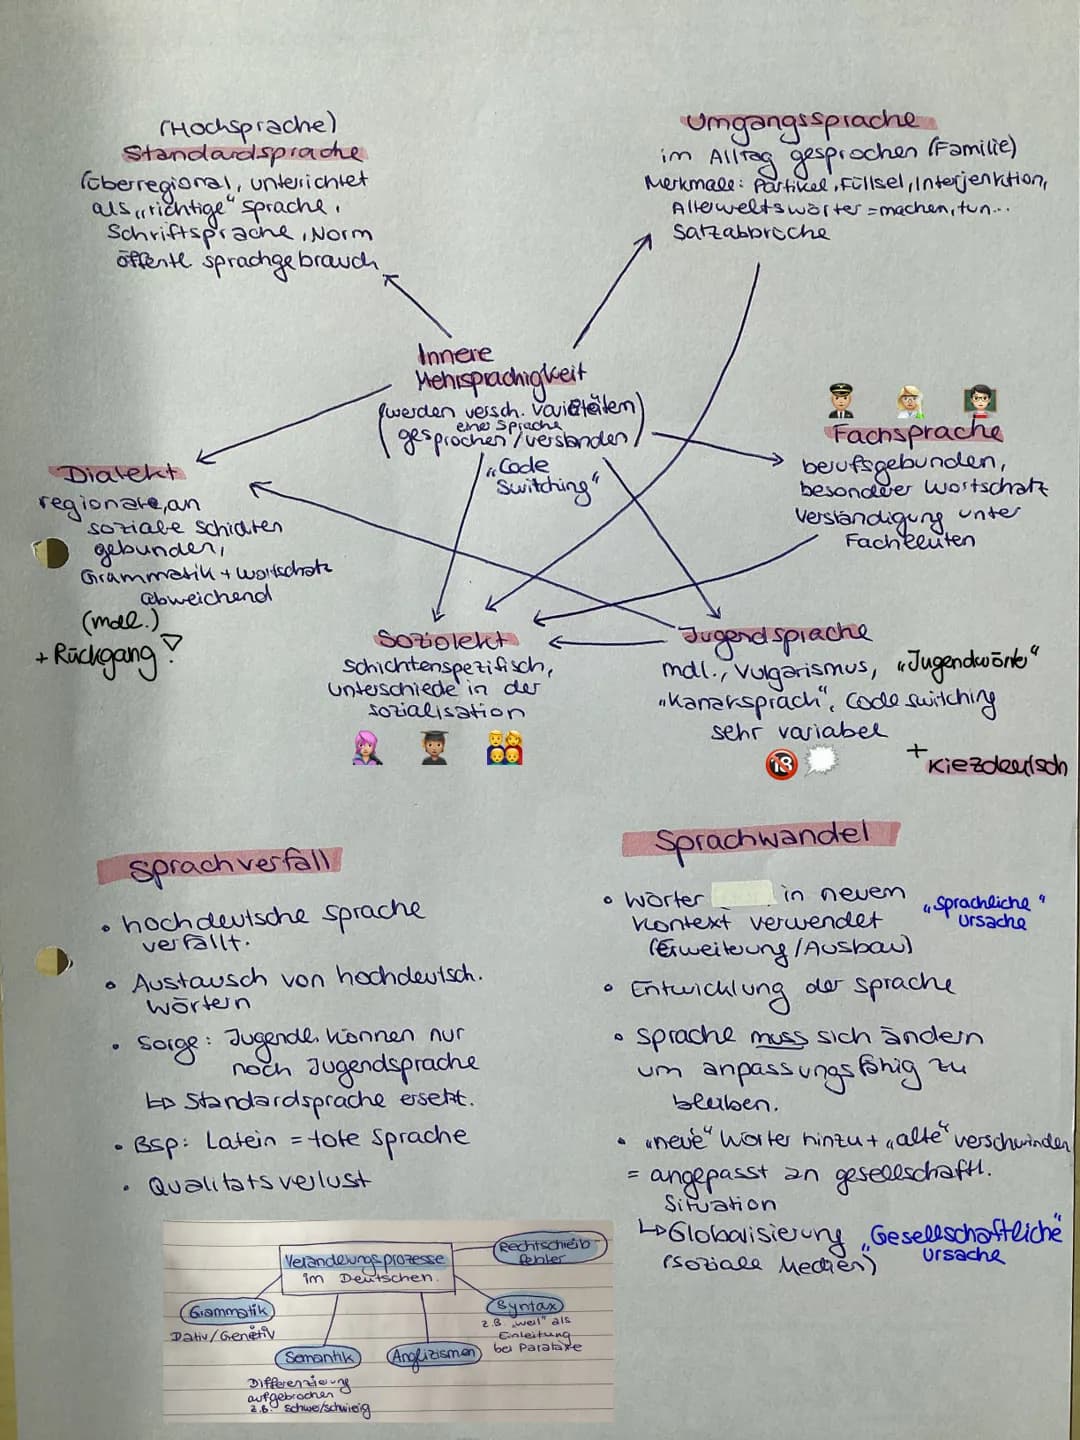 (Hochsprache)
Standardsprache
(überregional, unterrichtet
als „richtige“ Sprache,
Schriftsprache, Norm
öffentl. Sprachgebrauch
Umgangssprache
im Alltag gesprochen (Familie)
Merkmale: Partikel, Füllsel, Interjenktion,
Allerweltswörter = machen, tun...
Satzabbrüche
Innere
Mehrsprachigkeit
(werden versch. Varietäten
einer Sprache
gesprochen / verstanden)
„Code
Switching“
Fachsprache
berufsgebunden,
besonderer Wortschatz
Verständigung unter
Fachleuten
Dialekt
regionale, an
soziale Schichten
gebunden,
Grammatik + Wortschatz
abweichend
(mdl.)
+ Rückgang!
Soziolekt
Schichtenspezifisch,
Unterschiede in der
Sozialisation
Jugendsprache
mdl., Vulgarismus, „Jugendwörter“
„Kanaksprach“, Code switching
sehr variabel
18
+ Kiezdeutsch
Sprachverfall
• hochdeutsche Sprache
verfällt.
• Austausch von hochdeutsch.
Wörtern
• Sorge: Jugendl. können nur
noch Jugendsprache
↳ Standardsprache ersetzt.
• Bsp: Latein = tote Sprache
• Qualitätsverlust
Sprachwandel
• Wörter in neuem
Kontext verwendet
(Erweiterung / Ausbau)
„Sprachliche“
Ursache
• Entwicklung der Sprache
• Sprache muss sich ändern
um anpassungsfähig zu
bleiben.
• „neue“ Wörter hinzu + „alte“ verschwinden
= angepasst an gesellschaftl.
Situation
↳ Globalisierung
(soziale Medien)
„Gesellschaftliche“
Ursache
Veränderungsprozesse
im Deutschen.
Rechtschreib-
fehler
Grammatik
Dativ/Genetiv
Syntax
z.B. „weil“ als
Einleitung
bei Parataxe
Semantik
Differenzierung
aufgebrochen
z.B. schwer/schwierig
Anglizismen